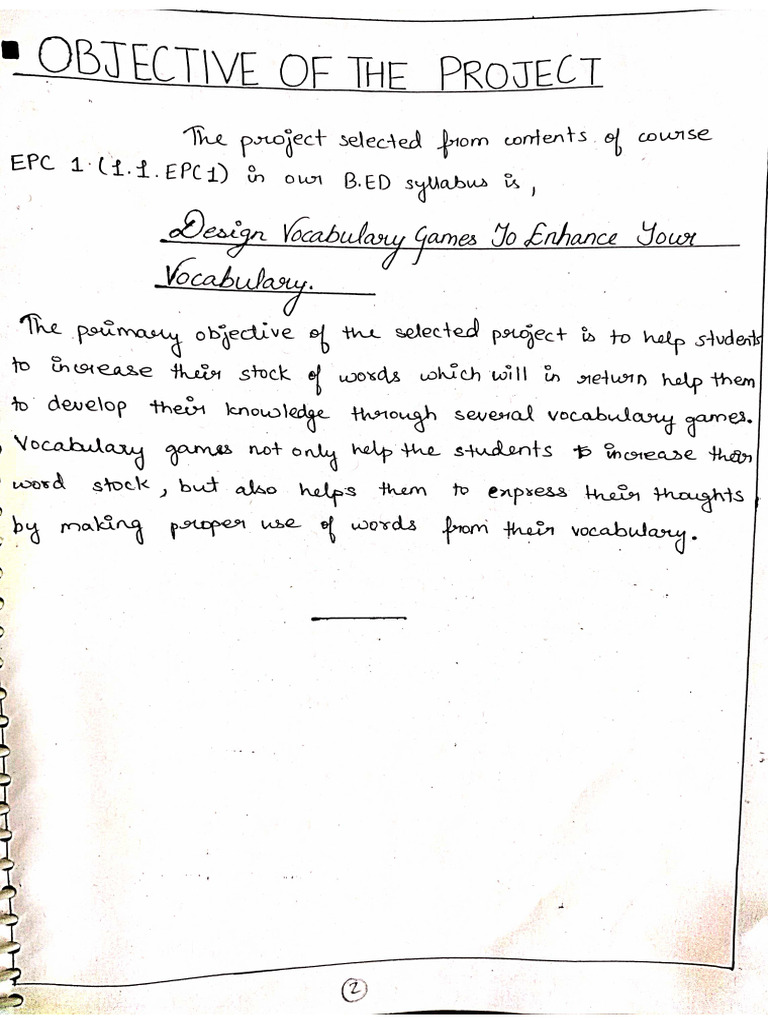 OBJECTIVE OF THE PROJECT
The project selected from contents of course
EPC 1 (1.1.EPC1) in our B.ED syllabus is,
Design Vocabulary Games To Enhance Your
Vocabulary.
The primary objective of the selected project is to help students
to increase their stock of words which will in return help them
to develop their knowledge through several vocabulary games.
Vocabulary games not only help the students to increase their
word stock, but also helps them to express their thoughts
by making proper use of words from their vocabulary.
2